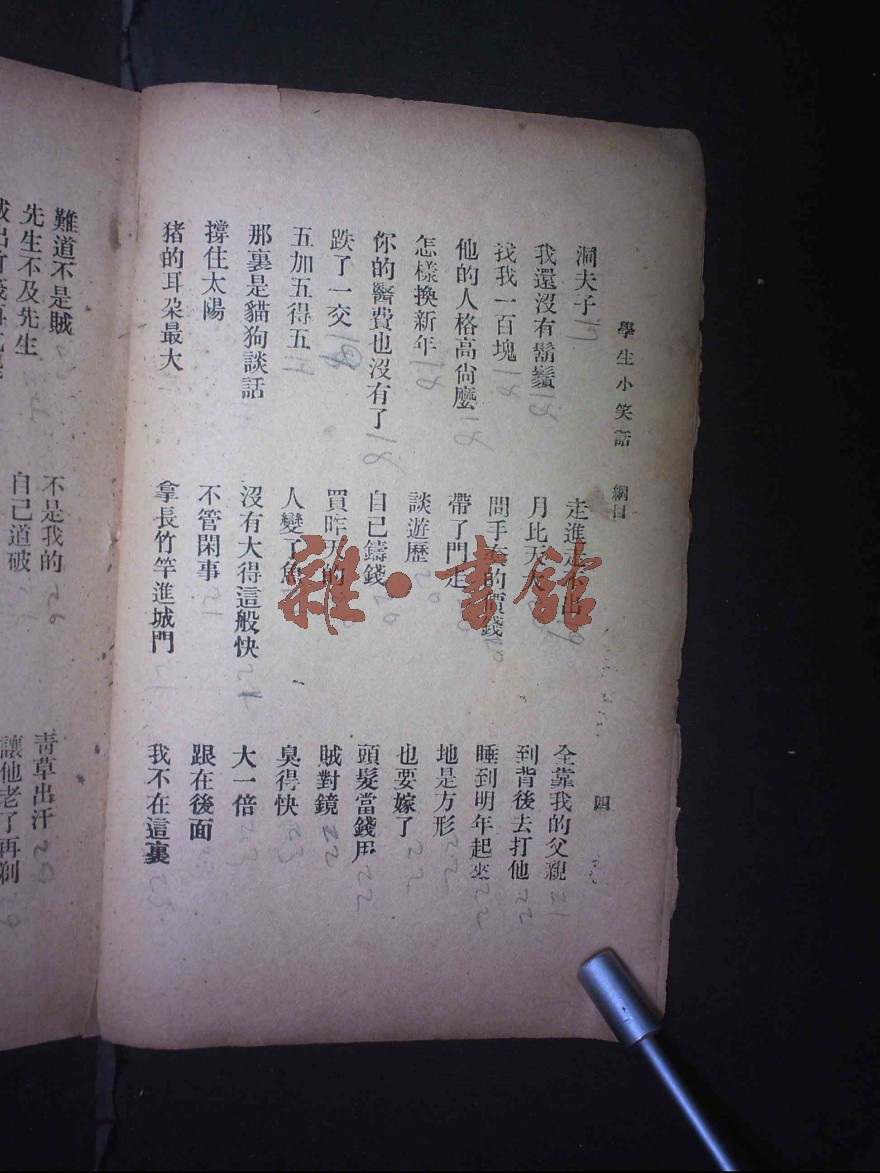 學生小笑話 綱目 四
洞夫子 17
我還沒有鬍鬚 18
找我一百塊 18
他的人格高尙麼 18
怎樣換新年 18
你的醫費也沒有了 18
跌了一交
五加五得五
那裏是貓狗談話
撐住太陽
猪的耳朶最大
走進走不出
月比天大
問手套的價錢
帶了門走
談遊歷 20
自己鑄錢 20
買昨天的
人變了魚
沒有大得這般快 21
不管閑事 21
拿長竹竿進城門 21
全靠我的父親 21
到背後去打他 22
睡到明年起來 22
地是方形 22
也要嫁了 22
頭髮當錢用 22
賊對鏡 22
臭得快 23
大一倍 23
跟在後面
我不在這裏
難道不是賊
先生不及先生
不是我的 26
自己道破
靑草出汗 29
讓他老了再剃 29
雜·書館